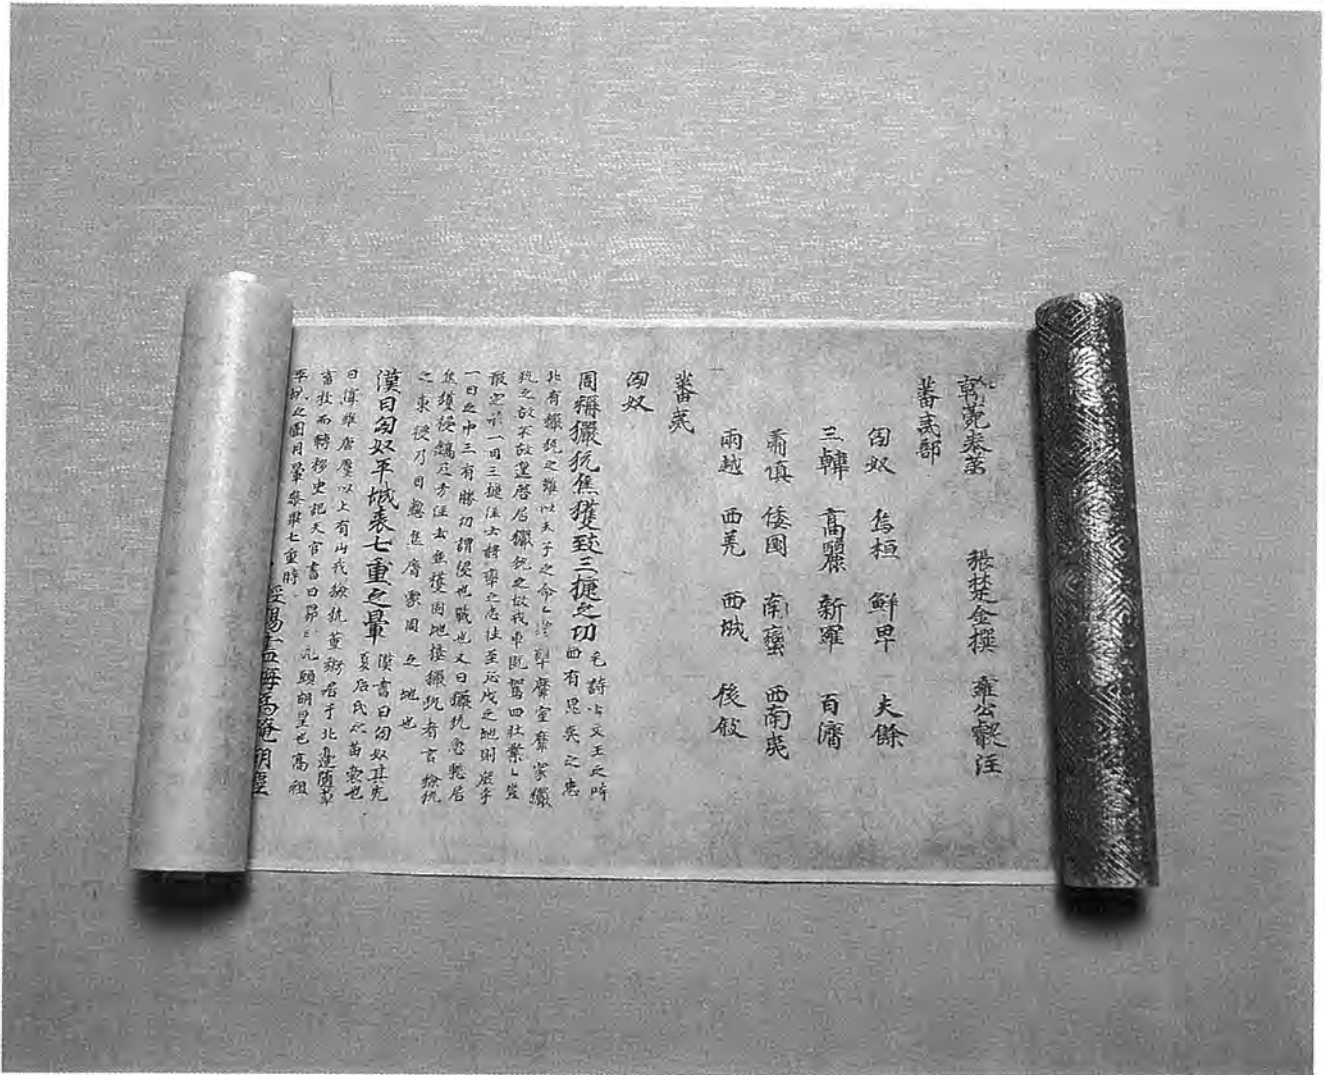 翰苑卷第 張楚金撰 雍公叡注
蕃夷部
匈奴 烏桓 鮮卑 夫餘
三韓 高驪 新羅 百濟
肅慎 倭國 南蠻 西南夷
兩越 西羌 西域 後敍
蕃夷
匈奴
周稱玁狁焦獲致三捷之功 毛詩曰文王之時
西有昆夷之患
北有玁狁之難以天子之命命 率靡室靡家玁
狁之故不敢遑啓居玁狁之故戎車既駕四牡業々豈
敢定 一月三捷注云將率之志往至所戍之地則庶乎
一月之中三有勝功謂侵也戰也又曰玁狁 居
焦獲侵鎬及方注云焦獲周地接玁狁者言獫狁
之來侵乃自整 周之地也
漢曰匈奴平城表七重之暈 漢書曰匈奴其先
夏后氏之苗裔也
曰淳維唐虞以上有山戎獫狁董粥居于北邊隨草
畜牧而轉移史記天官書曰昴曰 頭胡星也高祖
平城之圍月暈參畢七重時